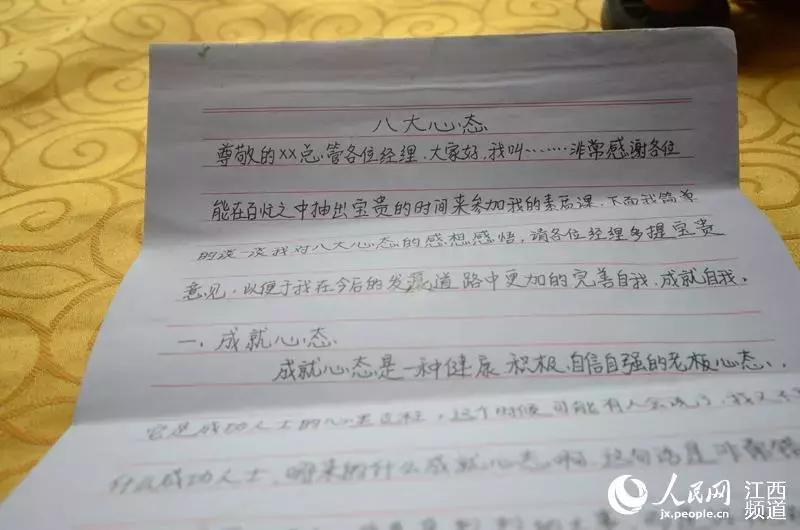 八大心态
尊敬的XX总管各位经理、大家好,我叫………非常感谢各位
能在百忙之中抽出宝贵的时间来参加我的素质课、下面我简单
的谈一谈我对八大心态的感想感悟,请各位经理多提宝贵
意见、以便于我在今后的发展道路中更加的完善自我、成就自我。
一、成就心态、
成就心态是一种健康、积极、自信自强的老板心态、
它是成功人士的心里过程,这个时候可能有人会说了、我又不是
什么成功人士、哪来的什么成就心态啊、这句话是非常错
人民网 江西频道
jx.people.cn